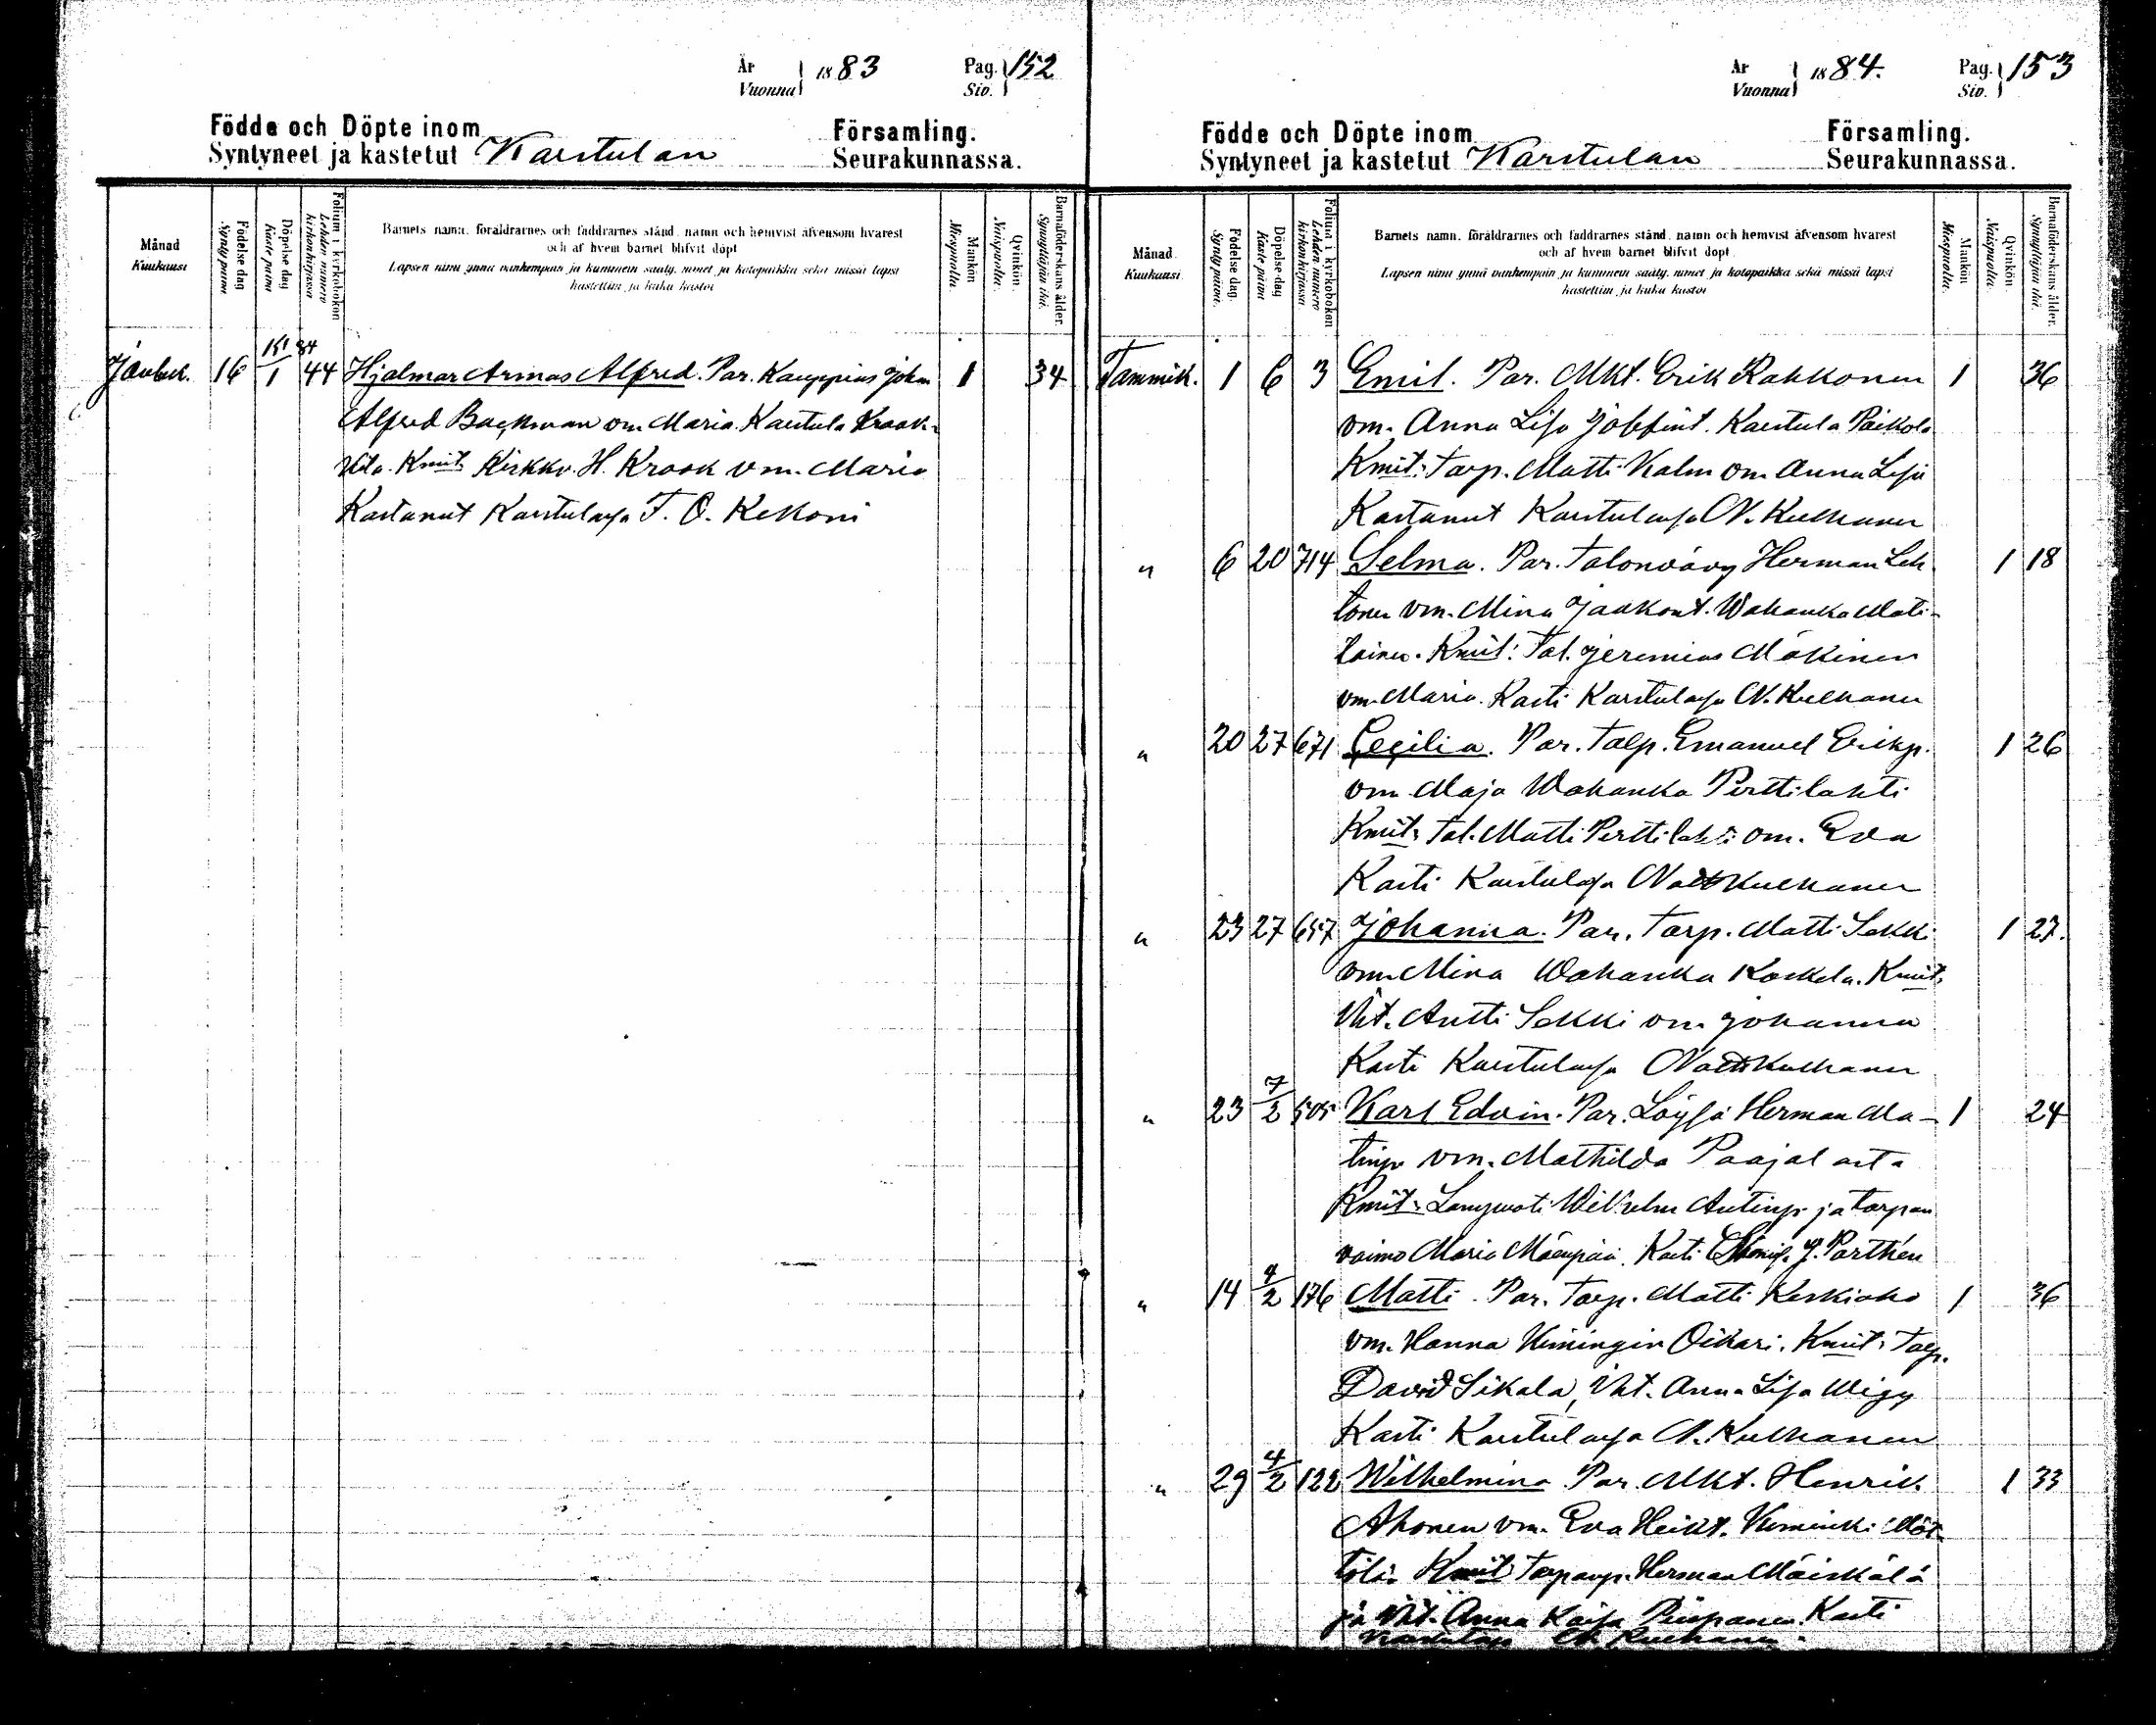 År Vuonna 1883 Pag. Siv. 152
Födde och Döpte inom Församling.
Syntyneet ja kastetut Karstulan Seurakunnassa.
Månad Kuukausi
Födelse dag Synty päivä
Döpelse dag Kaste päivä
Folium i kyrkoboken Lehden numero kirkonkirjassa
Barnets namn, föräldrarnes och faddrarnes stånd, namn och hemvist äfvensom hvarest
och af hvem barnet blifvit döpt
Lapsen nimi ynnä vanhempain ja kummein sääty, nimet ja kotopaikka sekä missä lapsi
kastettiin ja kuka kastoi
Mankön Miespuolta
Qvinkön Naispuolta
Barnaföderskans ålder. Synnyttäjän ikä.
Jouluk. 16 1/1 84 44 Hjalmar Armas Alfred. Par. Kauppias Johan 1 34
Alfred Backman vm. Maria Karstula
Kmit. Kirkkv. H. Krook vm. Maria
Kastanut Karstulassa F. O. Kekoni
År Vuonna 1884. Pag. Siv. 153
Födde och Döpte inom Församling.
Syntyneet ja kastetut Karstulan Seurakunnassa.
Månad Kuukausi
Födelse dag. Synty päivä.
Döpelse dag Kaste päivä
Folium i kyrkoboken Lehden numero kirkonkirjassa
Barnets namn, föräldrarnes och faddrarnes stånd, namn och hemvist äfvensom hvarest
och af hvem barnet blifvit döpt
Lapsen nimi ynnä vanhempain ja kummein sääty, nimet ja kotopaikka sekä missä lapsi
kastettiin ja kuka kastoi
Mankön Miespuolta.
Qvinkön Naispuolta
Barnaföderskans ålder. Synnyttäjän ikä.
Tammik. 1 6 3 Emil. Par. Mkt. Erik Rahkonen 1 36
vm. Anna Lisa Karstula
Kmit. Torp. Matti Kalm vm Anna Lisa
Kastanut Karstulassa N. Kulhanen
" 6 20 714 Selma. Par. Talonvävy Herman Leh 1 18
tonen vm. Mina Jaakont. Wahanka Mati-
lainen. Kmit: Tal. Jeremias Mäkinen
vm. Maria. Kasti Karstulassa N. Kulhanen
" 20 27 671 Cecilia. Par. Talp. Emanuel Erikp. 1 26
vm. Maja Wahanka Perttilahti
Kmit. Tal. Matti Perttilahti vm. Eva
Kasti Karstulassa Kulhanen
" 23 27 657 Johanna. Par. Torp. Matti Sekki 1 27.
vm. Mina Wahanka Koskela. Kmit.
Iht. Antti Sekki vm Johanna
Kasti Karstulassa Kulhanen
" 23 7/2 505 Karl Edvin. Par. Löysä Herman Ma- 1 24
tinp vm. Mathilda Paajal asta
Kmit. Wilhelm Antinp. ja torpan
vaimo Maria Mäenpää. Kasti J. Parthén
" 14 4/2 176 Matti. Par. Torp. Matti Keskiaho 1 36
vm. Hanna Kimingin Oikari. Kmit. Talp.
David Sikala, Iht. Anna Lisa
Kasti Karstulassa N. Kulhanen
" 29 4/2 122 Wilhelmina Par. Mkt. Henrik 1 33
Ahonen vm. Eva Heikt. Kiminki Möt
tölä. Kmit Herman Mäiskälä
ja Iht. Anna Kaisa Piispanen. Kasti
Karstulassa N. Kulhanen.